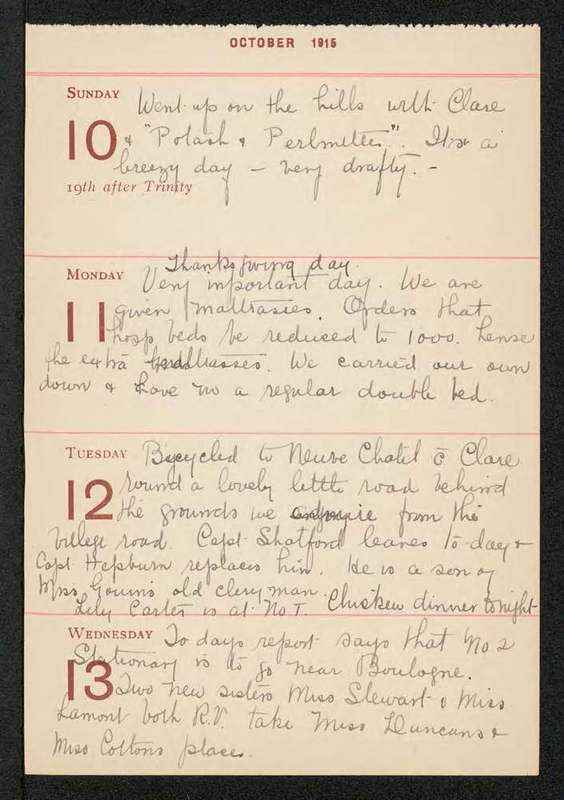 OCTOBER 1915
SUNDAY
10
19th after Trinity
Went up on the hills with Clare
& "Potash & Perlmetter". It is a
breezy day – very drafty. –
MONDAY
11
Thanksgiving day
Very important day. We are
given mattrasses. Orders that
hosp beds be reduced to 1000. hense
the extra mattrasses. We carried our own
down & have no a regular double bed.
TUESDAY
12
Bycycled to Neuve Chatel c̄ Clare
round a lovely little road behind
the grounds we from the
village road. Capt Shatford leaves to-day &
Capt Hepburn replaces him. He is a son of
Miss old clergyman. Chicken dinner tonight
Lily Carter is at No 1.
WEDNESDAY
13
To days report says that No 2
Stationary is to go near Boulogne.
Two new sisters Miss Stewart & Miss
Lamont both R.V. take Miss Duncans &
Miss Coltons places.